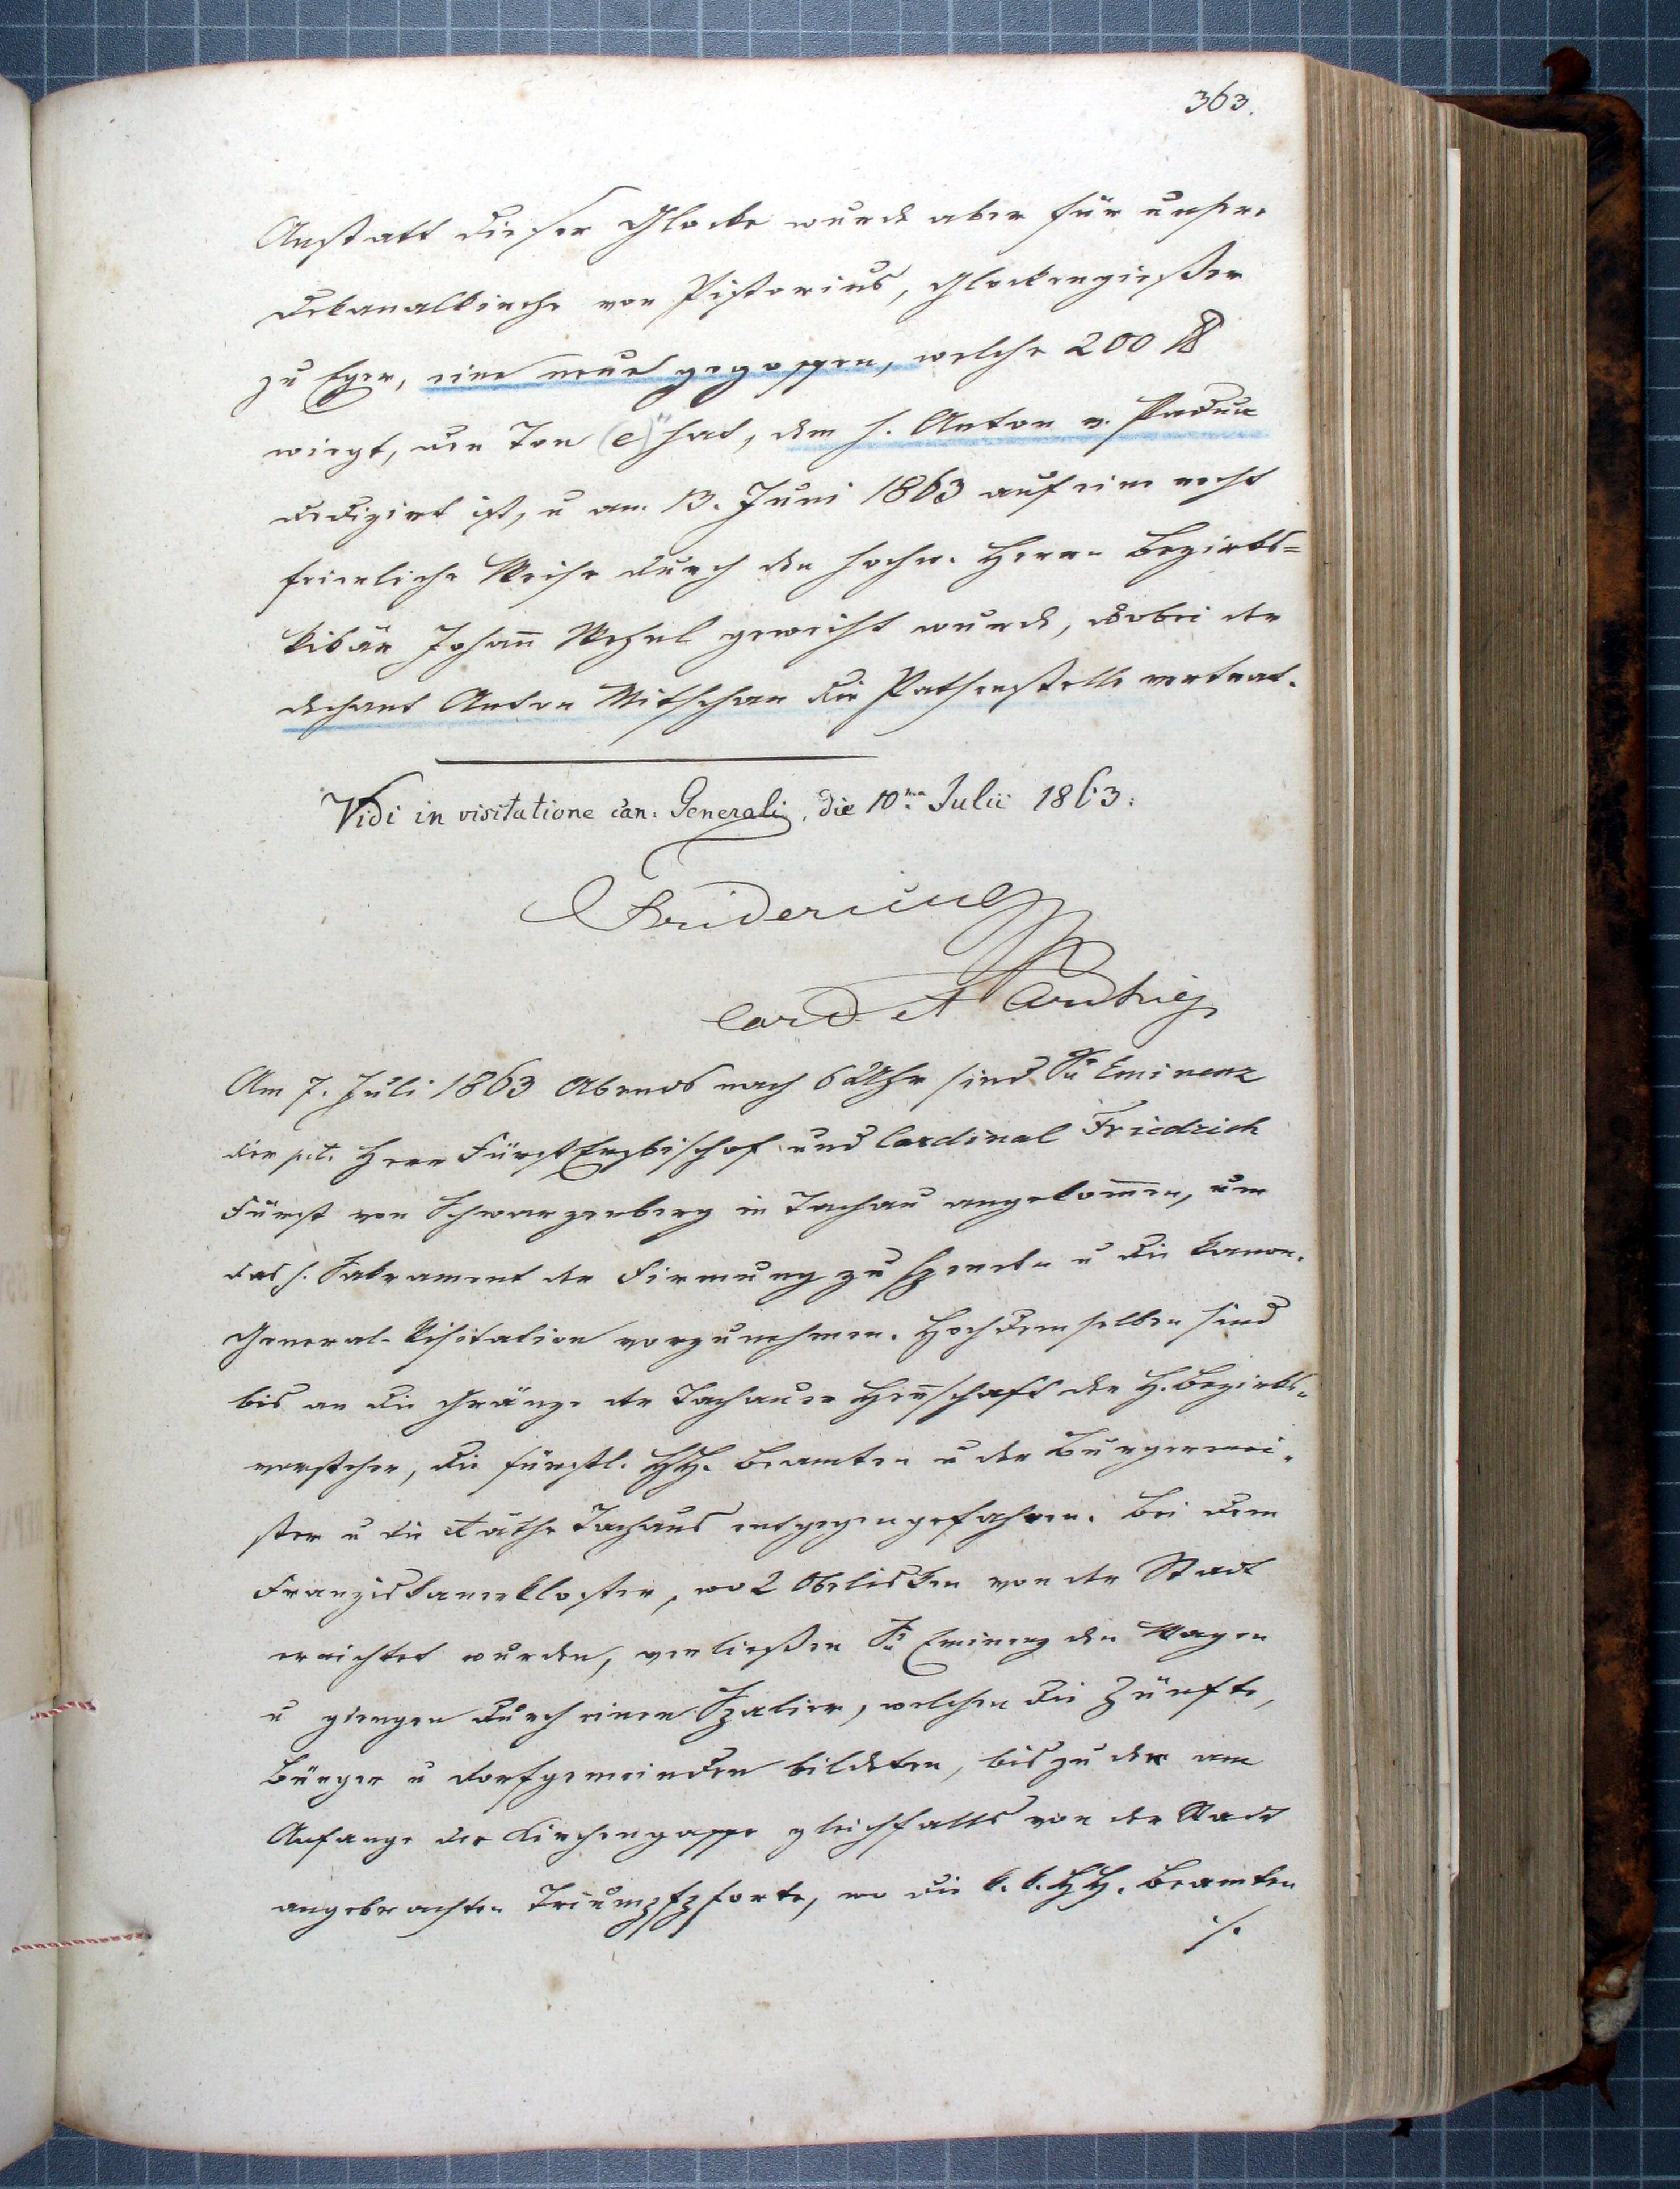 363.
Anstatt dieser Glocke wurde aber für unsere
Dekanalkirche von Pistorius, Glockengießer
zu Eger, eine neue gegossen, welche 200 ℔
wiegt, den Ton (e)" hat, dem h. Anton v. Padua
dedizirt ist, u am 13. Juni 1863 auf eine recht
feierliche Weise durch den hochw. Herrn Bezirks=
vikär Johann geweiht wurde, wobei der
Dechant Anton Mitschan die Pathenstelle vertrat.
Vidi in visitatione can: Generali, die 10ma Julii 1863:
Fridericus
Card. et
Am 7. Juli 1863 Abends nach 6 Uhr sind Se Eminenz
der p.t. Herr Fürst Erzbischof und Cardinal Friedrich
Fürst von Schwarzenberg in Tachau angekommen, um
das h. Sakrament der Firmung zu spenden u die kanon.
General-Visitation vorzunehmen. Hochdemselben sind
bis an die Gränze der Tachauer Herrschaft der H. Bezirks=
vorsteher, die fürstl. HH. Beamten u der Bürgermei=
ster u die Räthe Tachaus entgegengefahren. Bei dem
Franziskanerkloster, wo 2 Obelisken von der Stadt
errichtet wurden, verließen Se Eminenz den Wagen
u giengen durch einen Spalier, welchen die Zünfte,
Bürger u Dorfgemeinden bildeten, bis zu der am
Anfange der Kirchengasse gleichfalls von der Stadt
angebrachten Triumpfpforte, wo die k. k. HH. Beamten
./.